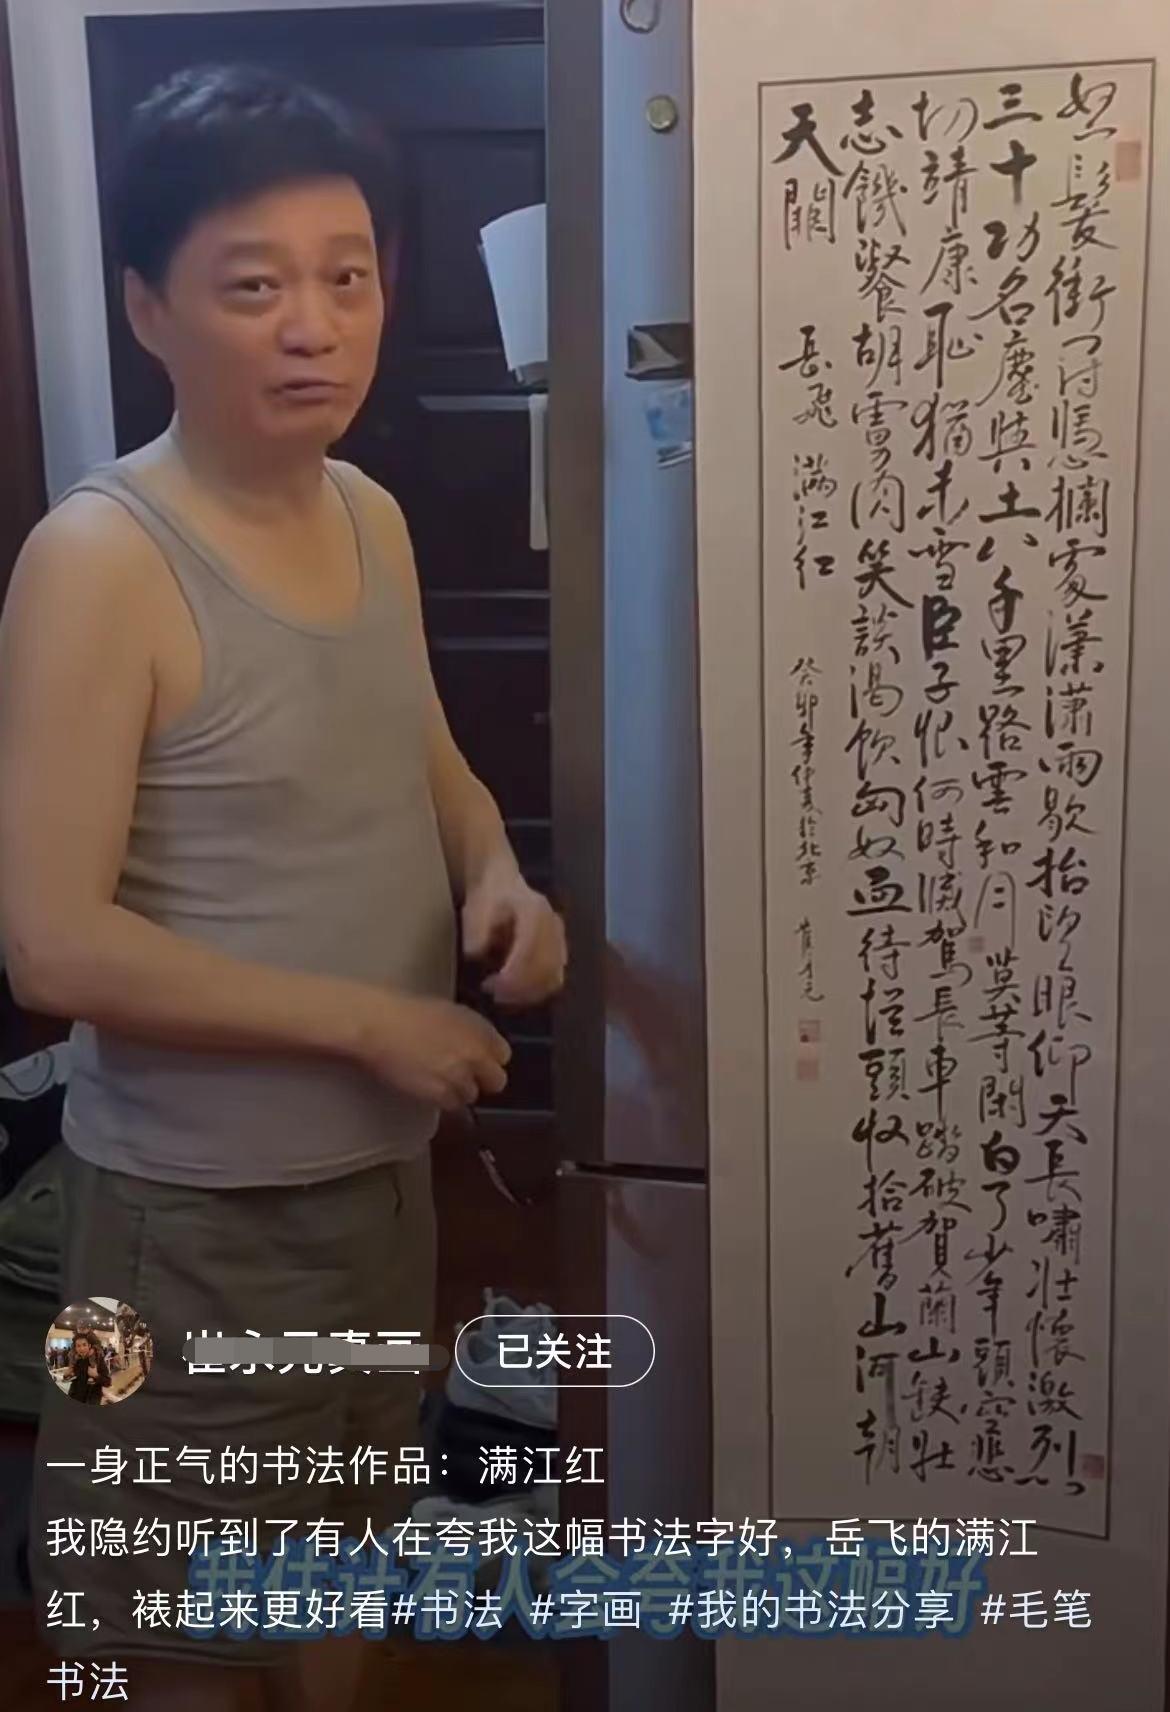 怒髮衝冠憑攔處瀟瀟雨歇抬望眼仰天長嘯壯懷激烈
三十功名塵與土八千里路雲和月莫等閑白了少年頭空悲
切靖康恥猶未雪臣子恨何時滅駕長車踏破賀蘭山缺壯
志饑餐胡虜肉笑談渴飲匈奴血待從頭收拾舊山河朝
天闕 岳飛 滿江紅 癸卯年仲春於北京 崔永元
已关注
一身正气的书法作品：满江红
我隐约听到了有人在夸我这幅书法字好，岳飞的满江
红，裱起来更好看#书法 #字画 #我的书法分享 #毛笔
书法
我估计有人会夸我这幅好